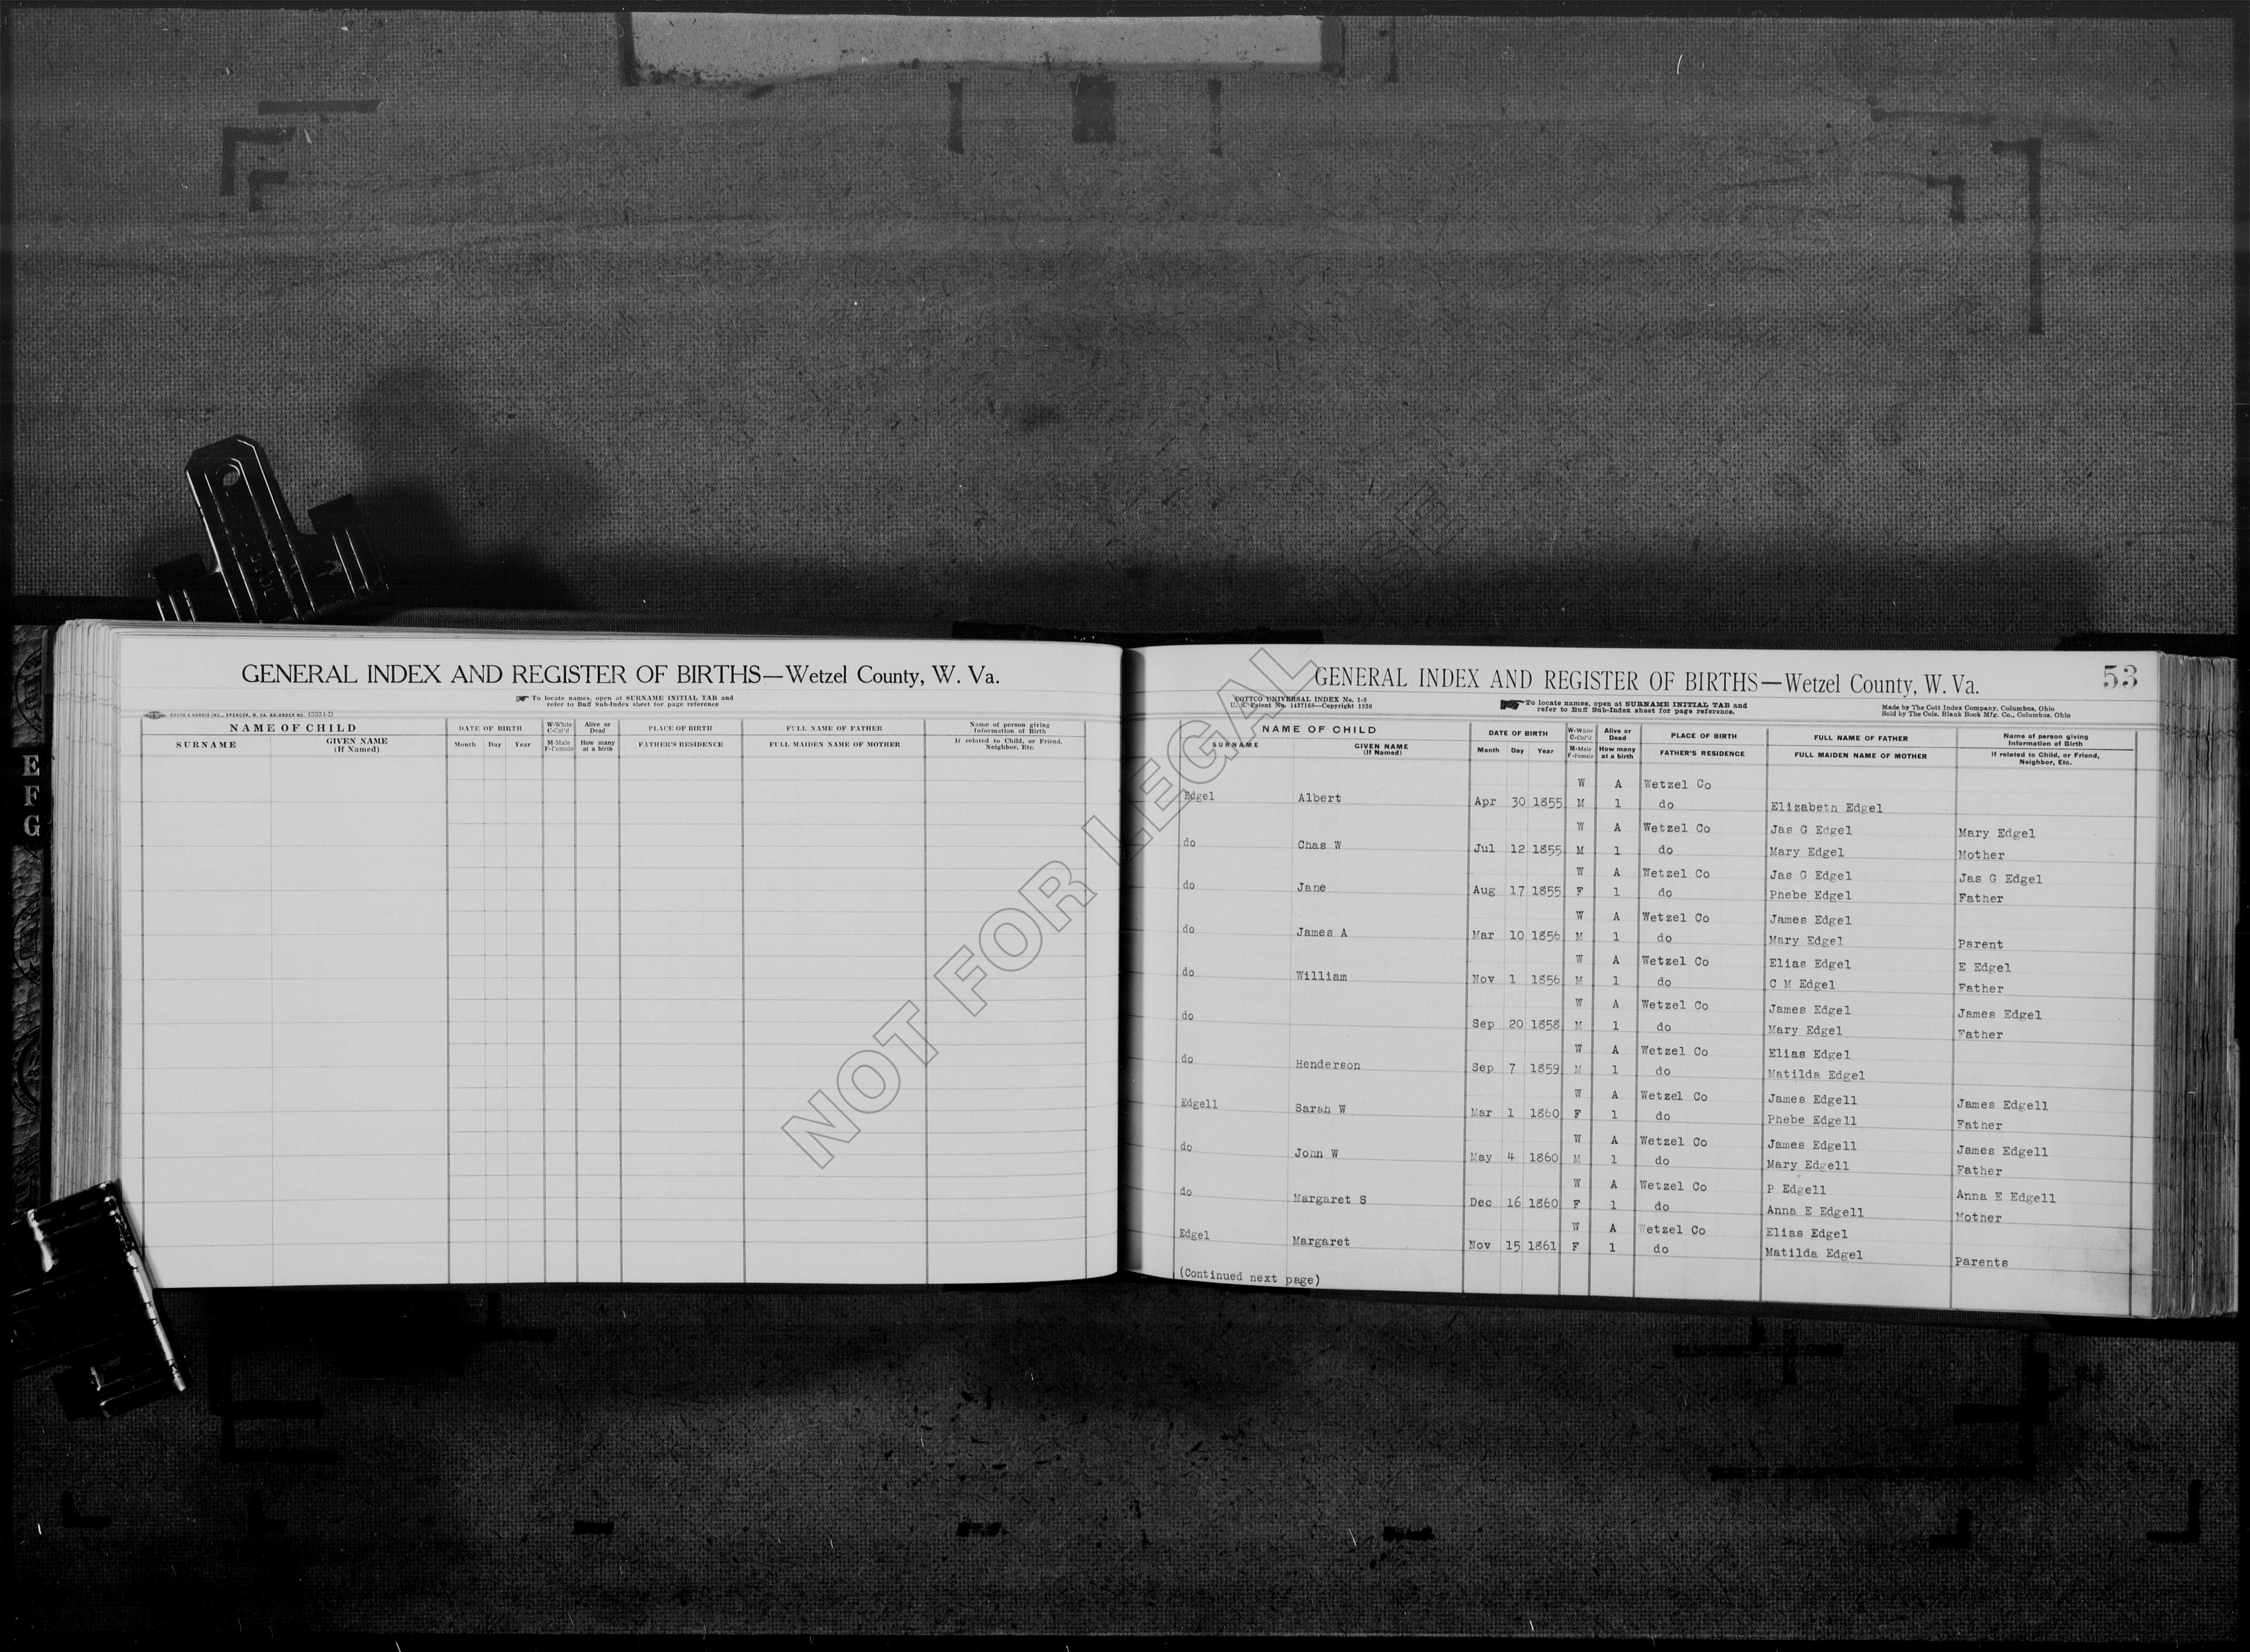 GENERAL INDEX AND REGISTER OF BIRTHS—Wetzel County, W. Va.
To locate names, open at SURNAME INITIAL TAB and
refer to Buff Sub-Index sheet for page reference
CASTO & HARRIS INC., SPENCER, W. VA. RE-ORDER NO. 13521-D
NAME OF CHILD DATE OF BIRTH W-White C-Col'd Alive or Dead PLACE OF BIRTH FULL NAME OF FATHER Name of person giving Information of Birth
SURNAME GIVEN NAME (If Named) Month Day Year M-Male F-Female How many at a birth FATHER'S RESIDENCE FULL MAIDEN NAME OF MOTHER If related to Child, or Friend, Neighbor, Etc.
E
F
G
GENERAL INDEX AND REGISTER OF BIRTHS—Wetzel County, W. Va.
53
COTTCO UNIVERSAL INDEX No. 1-8
U. S. Patent No. 1437168—Copyright 1930
To locate names, open at SURNAME INITIAL TAB and
refer to Buff Sub-Index sheet for page reference.
Made by The Cott Index Company, Columbus, Ohio
Sold by The Cols. Blank Book Mfg. Co., Columbus, Ohio
NAME OF CHILD DATE OF BIRTH W-White C-Col'd Alive or Dead PLACE OF BIRTH FULL NAME OF FATHER Name of person giving Information of Birth
SURNAME GIVEN NAME (If Named) Month Day Year M-Male F-Female How many at a birth FATHER'S RESIDENCE FULL MAIDEN NAME OF MOTHER If related to Child, or Friend, Neighbor, Etc.
W A Wetzel Co
Edgel Albert Apr 30 1855 M 1 do Elizabeth Edgel
W A Wetzel Co Jas G Edgel Mary Edgel
do Chas W Jul 12 1855 M 1 do Mary Edgel Mother
W A Wetzel Co Jas G Edgel Jas G Edgel
do Jane Aug 17 1855 F 1 do Phebe Edgel Father
W A Wetzel Co James Edgel
do James A Mar 10 1856 M 1 do Mary Edgel Parent
W A Wetzel Co Elias Edgel E Edgel
do William Nov 1 1856 M 1 do C M Edgel Father
W A Wetzel Co James Edgel James Edgel
do Sep 20 1858 M 1 do Mary Edgel Father
W A Wetzel Co Elias Edgel
do Henderson Sep 7 1859 M 1 do Matilda Edgel
W A Wetzel Co James Edgell James Edgell
Edgell Sarah W Mar 1 1860 F 1 do Phebe Edgell Father
W A Wetzel Co James Edgell James Edgell
do John W May 4 1860 M 1 do Mary Edgell Father
W A Wetzel Co P Edgell Anna E Edgell
do Margaret S Dec 16 1860 F 1 do Anna E Edgell Mother
W A Wetzel Co Elias Edgel
Edgel Margaret Nov 15 1861 F 1 do Matilda Edgel Parents
(Continued next page)
NOT FOR LEGAL USE